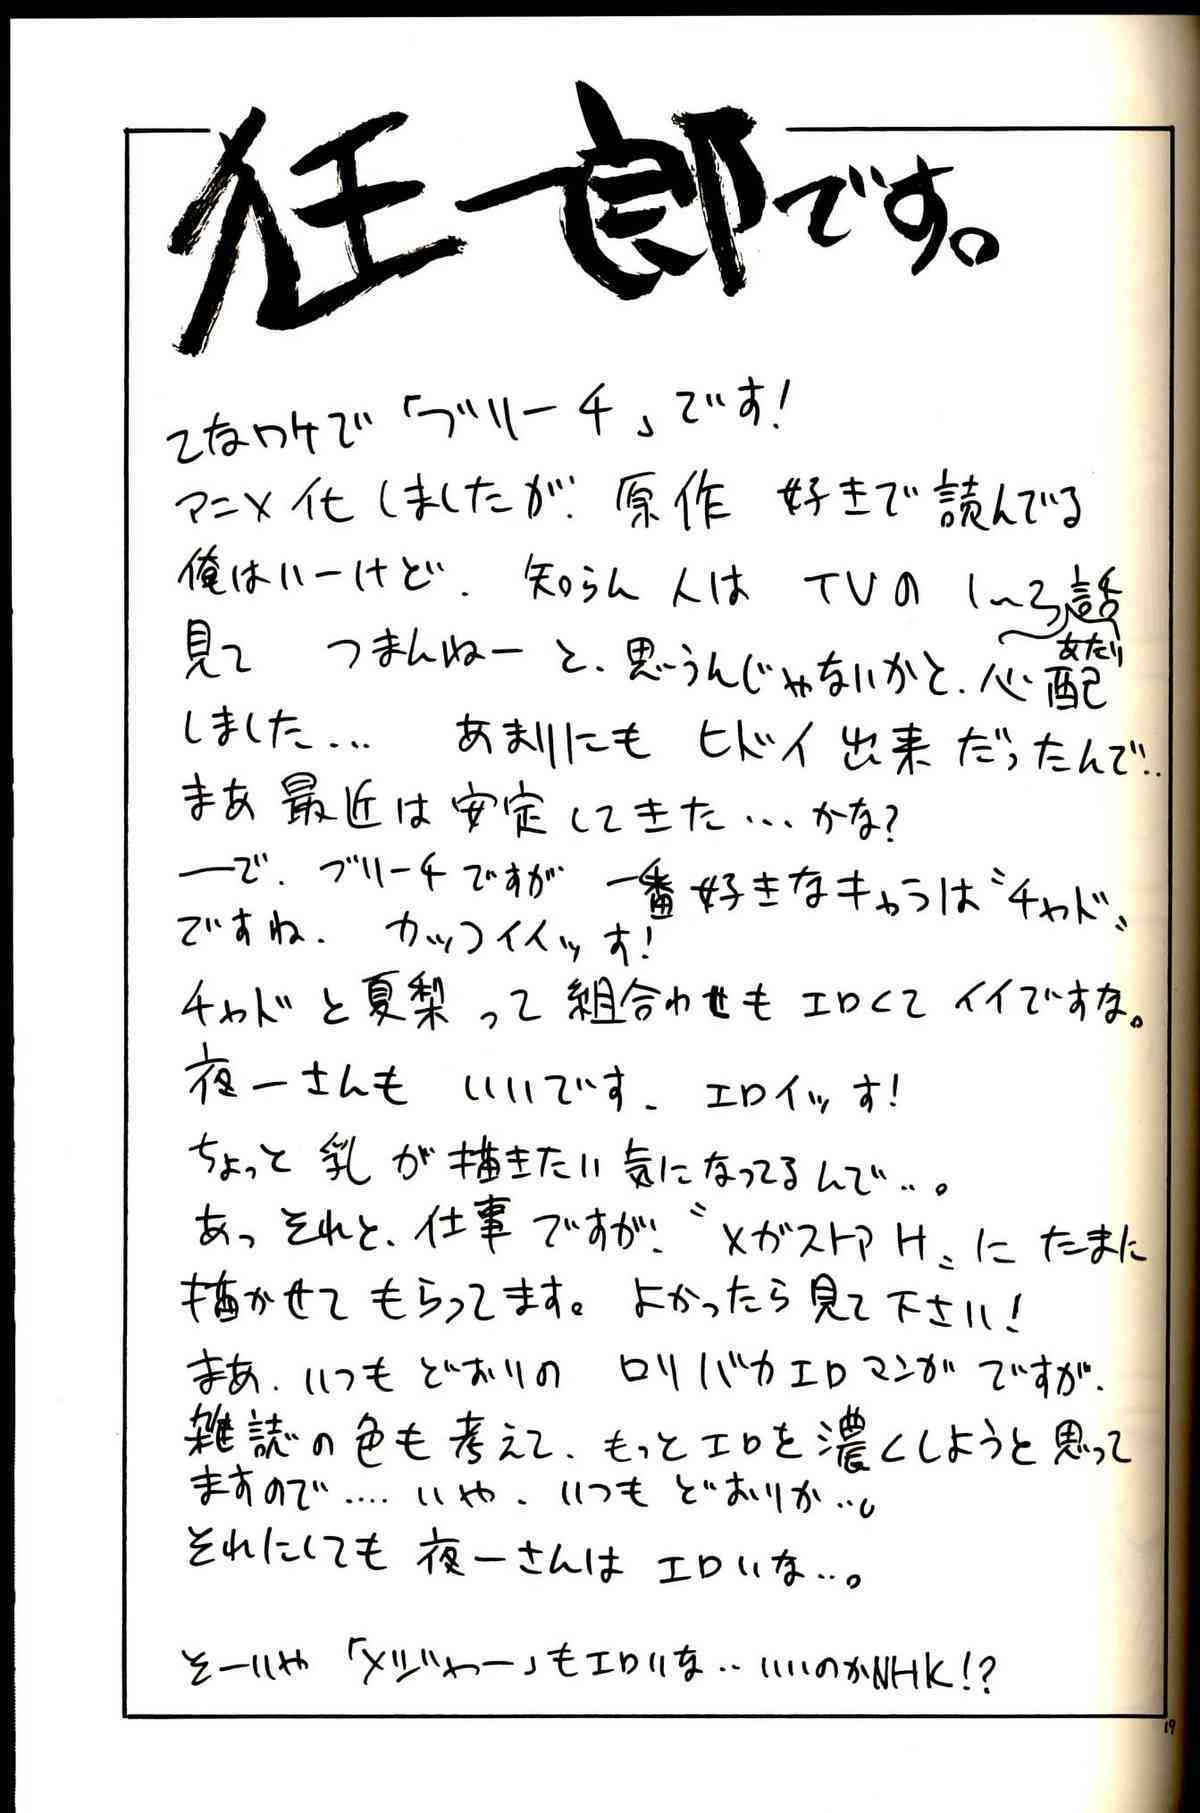 狂一郎です。
てなワケで「ブリーチ」です!
アニメ化しましたが、原作 好きで読んでる
俺はいーけど、知らん人は TVの 1〜3話
あたり
見て つまんねーと、思うんじゃないかと、心配
しました… あまりにも ヒドイ出来だったんで‥
まあ最近は安定してきた…かな?
―で、ブリーチですが 一番好きなキャラは〝チャド〟
ですね、カッコイイッす!
チャドと夏梨って組合わせも エロくて イイですな。
夜一さんも いいです、エロイッす!
ちょっと乳が描きたい気になってるんで‥。
あっそれと、仕事ですが、〝メガストアH〟に たまに
描かせてもらってます。よかったら見て下さい!
まあ、いつもどおりの ロリバカエロマンガですが、
雑誌の色も考えて、もっとエロを濃くしようと思って
ますので‥‥いや、いつもどおりか‥。
それにしても夜一さんは エロいな‥。
そーいや「メジャー」もエロいな‥いいのかNHK!?
19